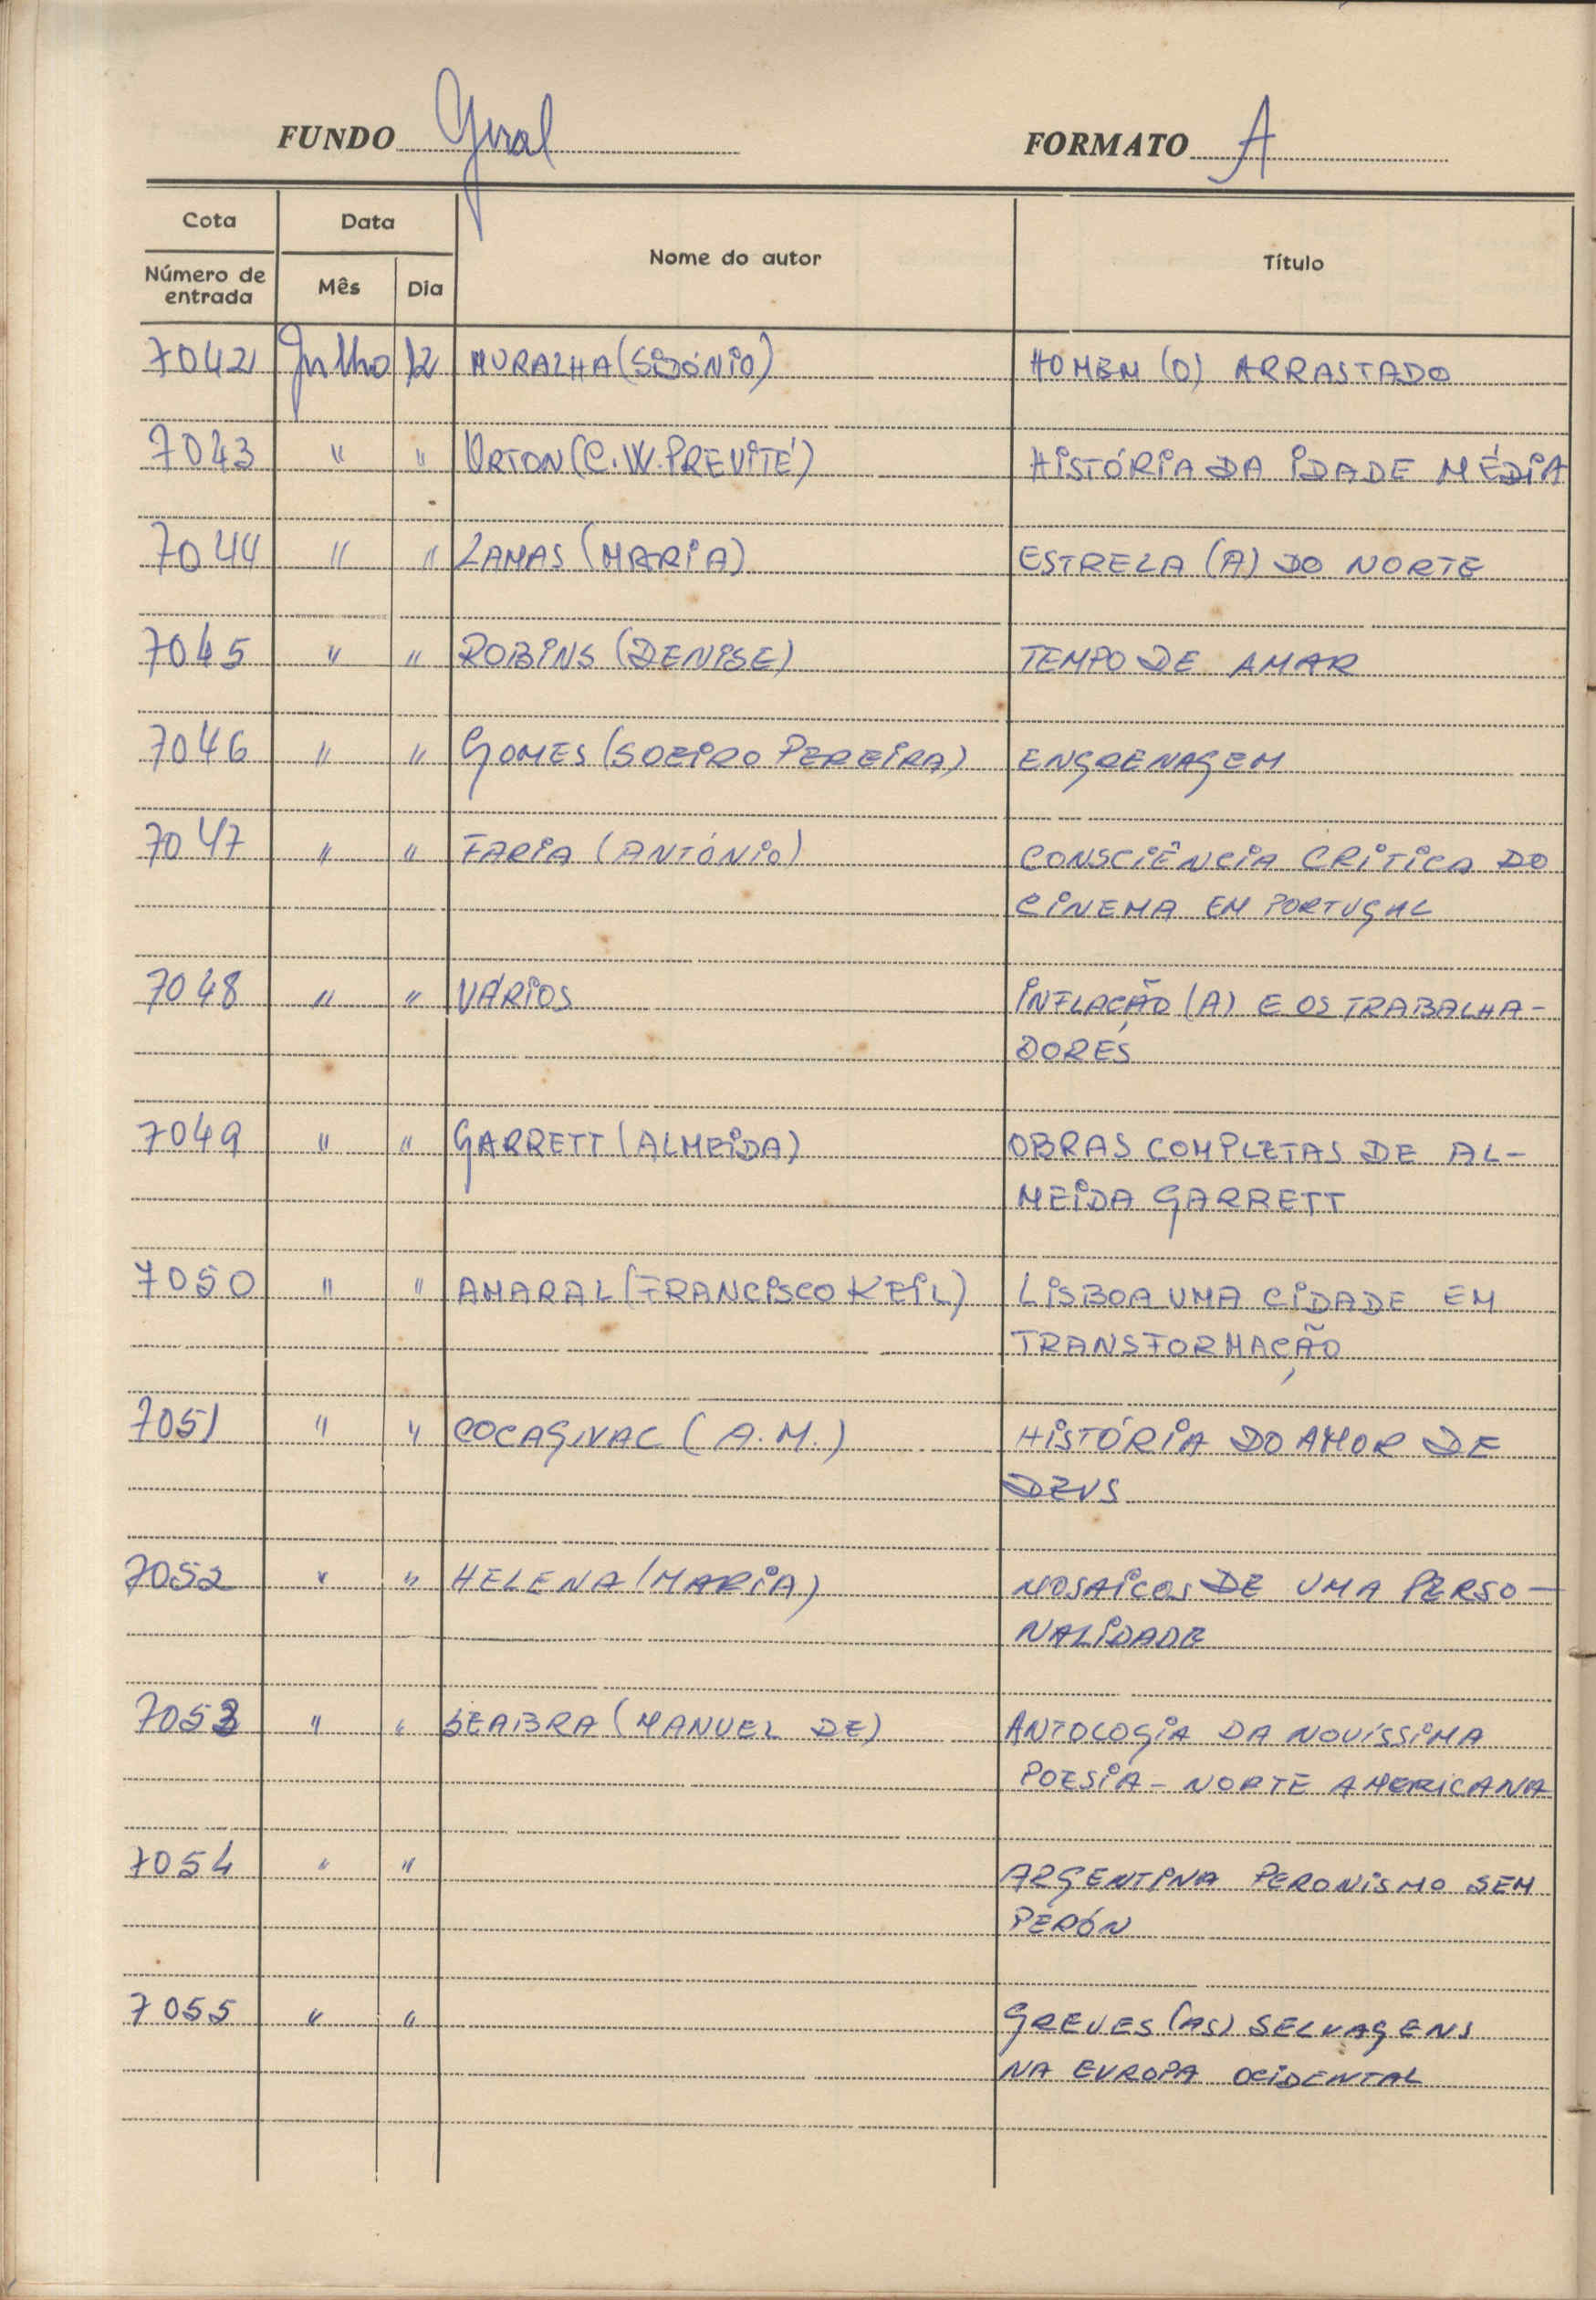 FUNDO Geral FORMATO A
Cota Data Nome do autor Título
Número de entrada Mês Dia
7042 Julho 12 MURALHA (SIDÓNIO) HOMEM (O) ARRASTADO
7043 " " ORTON (C. W. PREVITÉ) HISTÓRIA DA IDADE MÉDIA
7044 " " LAMAS (MARIA) ESTRELA (A) DO NORTE
7045 " " ROBINS (DENISE) TEMPO DE AMAR
7046 " " GOMES (SOEIRO PEREIRA) ENGRENAGEM
7047 " " FARIA (ANTÓNIO) CONSCIÊNCIA CRITICA DO
CINEMA EM PORTUGAL
7048 " " VÁRIOS INFLAÇÃO (A) E OS TRABALHA-
DORES
7049 " " GARRETT (ALMEIDA) OBRAS COMPLETAS DE AL-
MEIDA GARRETT
7050 " " AMARAL (FRANCISCO KEIL) LISBOA UMA CIDADE EM
TRANSFORMAÇÃO
7051 " " COCAGNAC (A. M.) HISTÓRIA DO AMOR DE
DEUS
7052 " " HELENA (MARIA) MOSAICOS DE UMA PERSO-
NALIDADE
7053 " " SEABRA (MANUEL DE) ANTOLOGIA DA NOVÍSSIMA
POESIA - NORTE AMERICANA
7054 " " ARGENTINA PERONISMO SEM
PERÓN
7055 " " GREVES (AS) SELVAGENS
NA EUROPA OCIDENTAL